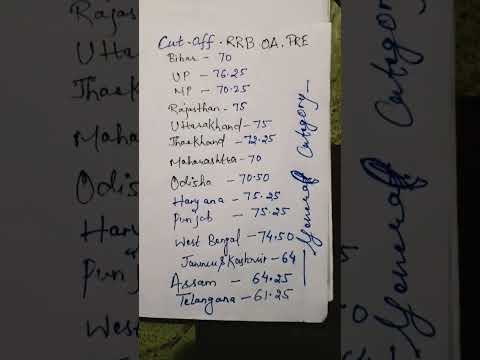 Cut-off. RRB OA. PRE
Bihar - 70
UP - 76.25
MP - 70.25
Rajasthan - 75
Uttarakhand - 75
Jharkhand - 72.25
Maharashtra - 70
Odisha - 70.50
Haryana - 75.25
Punjab - 75.25
West Bengal - 74.50
Jammu & Kashmir - 64
Assam - 64.25
Telangana - 61.25
General Category